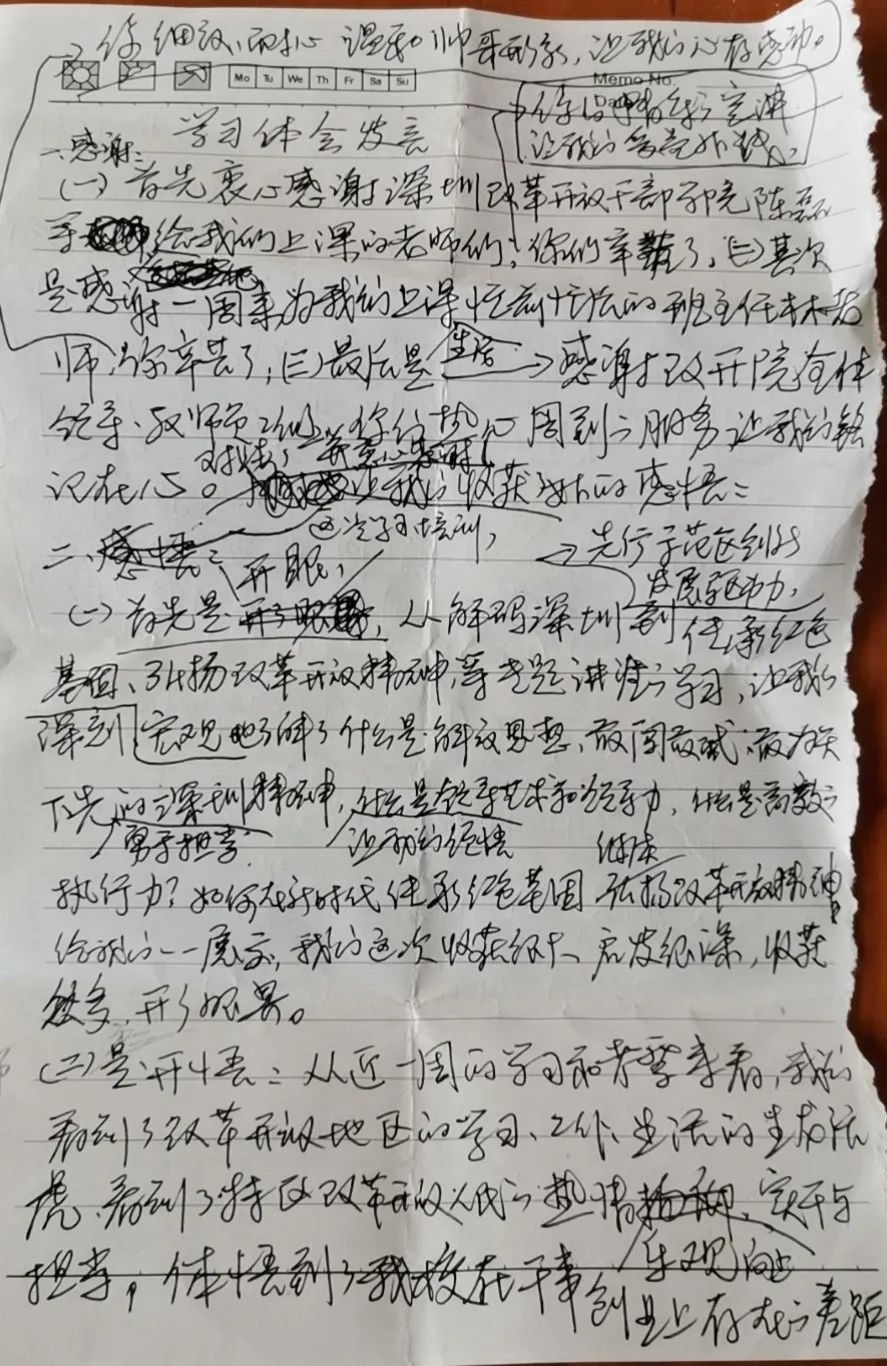 你细致、耐心、温和、帅哥形象，让我们心存感动。
Mo Tu We Th Fr Sa Su
Memo No.
Da
你的精彩宣讲
让我们
学习体会发言
一、感谢：
(一) 首先衷心感谢深圳改革开放干部学院陈磊
等 给我们上课的老师们，你们辛苦了，(二)其次
是感谢一周来为我们上课忙前忙后的班主任林老
师，你辛苦了，(三)最后是 感谢改开院全体
生活
领导、教师员工们 你们热心周到的服务让我们铭
记在心。 让我们收获 的感悟：
这次学习培训，
二、感悟：
开眼，
先行示范区到
发展驱动力，
(一) 首先是 从解码深圳到 传承红色
基因、弘扬改革开放精神等专题讲准的学习，让我们
深刻、宏观地了解了什么是解放思想、敢闯敢试、敢为天
下先的深圳精神，什么是领导艺术和领导力，什么是高效的
勇于担当
让我们 继续
执行力？如何在新时代传承红色基因 弘扬改革开放精神
给我们一一展示，我们这次收获很大、启发很深，收获
很多，开了眼界。
(二)是开悟：从近一周的学习和考察来看，我们
看到了改革开放地区的学习、工作、生活的生龙活
虎、看到了特区改革开放人民的热情 、实干与
乐观向上
担当，体悟到了我校在干事创业上存在的差距